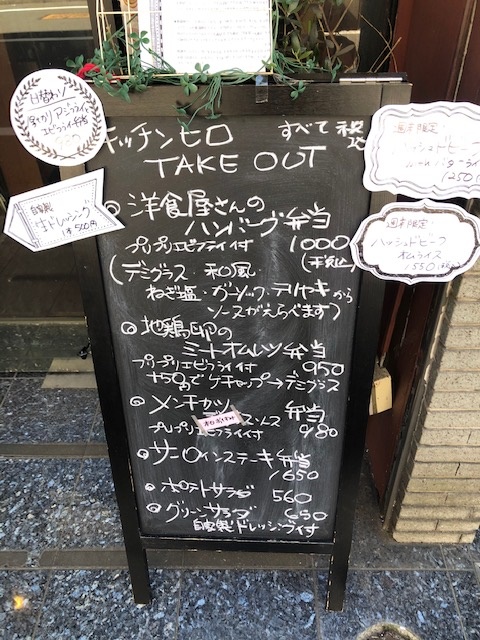 キッチンヒロ
すべて税込
TAKE OUT
◎洋食屋さんの
ハンバーグ弁当
プリプリエビフライ付 1000
(税込)
(デミグラス・和風
ねぎ塩・ガーリック・テリヤキから
ソースがえらべます)
◎地鶏卵の
ミートオムレツ弁当
プリプリエビフライ付 950
+50円でケチャップ→デミグラス
◎メンチカツ 弁当
ソース
プリプリエビフライ付 980
◎サーロインステーキ弁当
1650
◎ポテトサラダ 560
◎グリーンサラダ 650
自家製ドレッシング付
日替わり
エビフライ弁当
自家製
生ドレッシング
1本500円
週末限定
ハッシュドビーフ
週末限定
ハッシュドビーフ
オムライス
1550